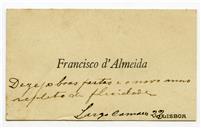 Francisco d'Almeida
Dezejo boas festas e o novo anno
repleto de felicidade
Largo Camões 22
LISBOA